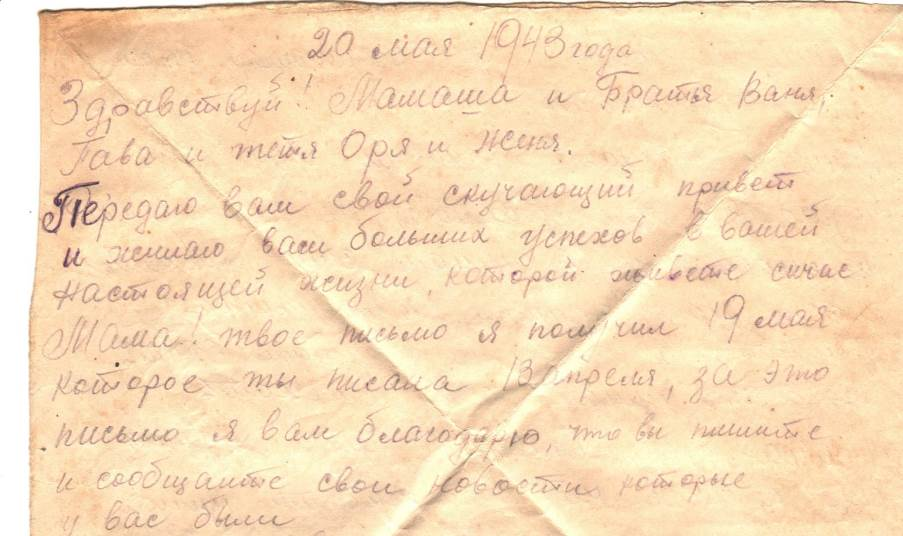 20 мая 1943 года
Здравствуй! Мамаша и Братья Ваня,
Гава и тетя Оря и Женя.
Передаю вам свой скучающий привет
и желаю вам больших успехов в вашей
настоящей жизни, которой живете сичас
Мама! твое письмо я получил 19 мая
которое ты писала 13 апреля, за это
письмо я вам благодарю, что вы пишите
и сообщаите свои новости, которые
у вас были